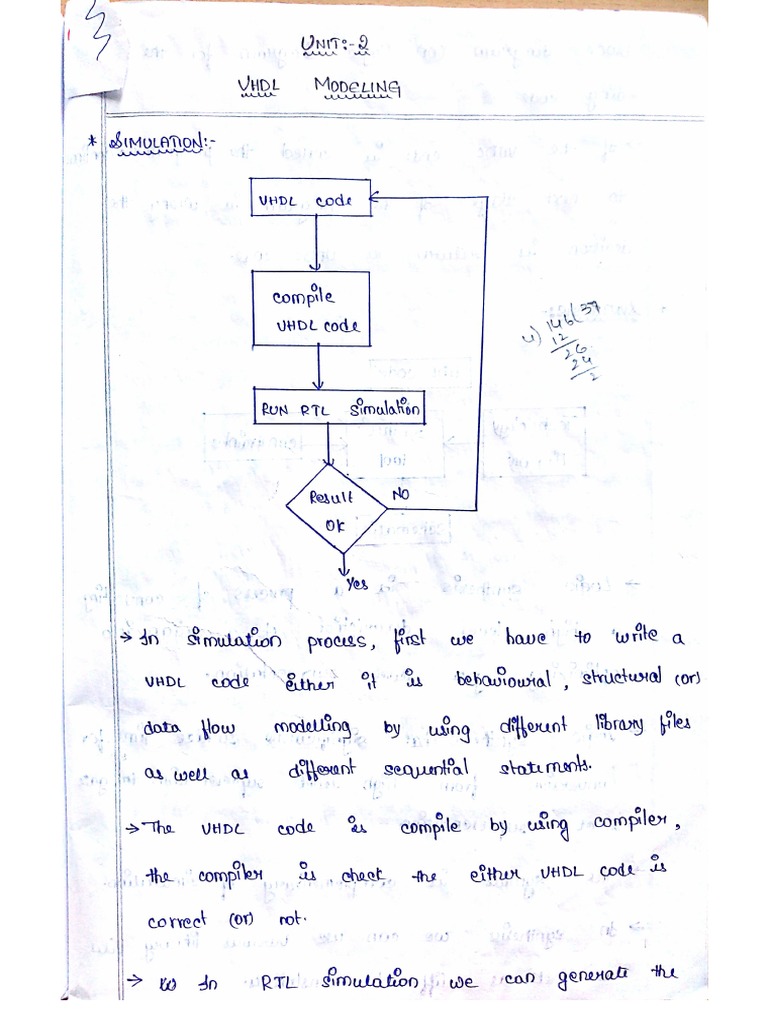 UNIT:-2
VHDL MODELING
* SIMULATION:-
VHDL code
compile
VHDL code
4) 146(37
12
26
24
2
RUN RTL simulation
Result
OK
NO
Yes
→ In simulation process, first we have to write a
VHDL code either it is behavioural, structural (or)
data flow modelling by using different library files
as well as different sequential statements.
→ The VHDL code is compile by using compiler,
the compiler is check the either VHDL code is
correct (or) not.
→ In RTL simulation we can generate the